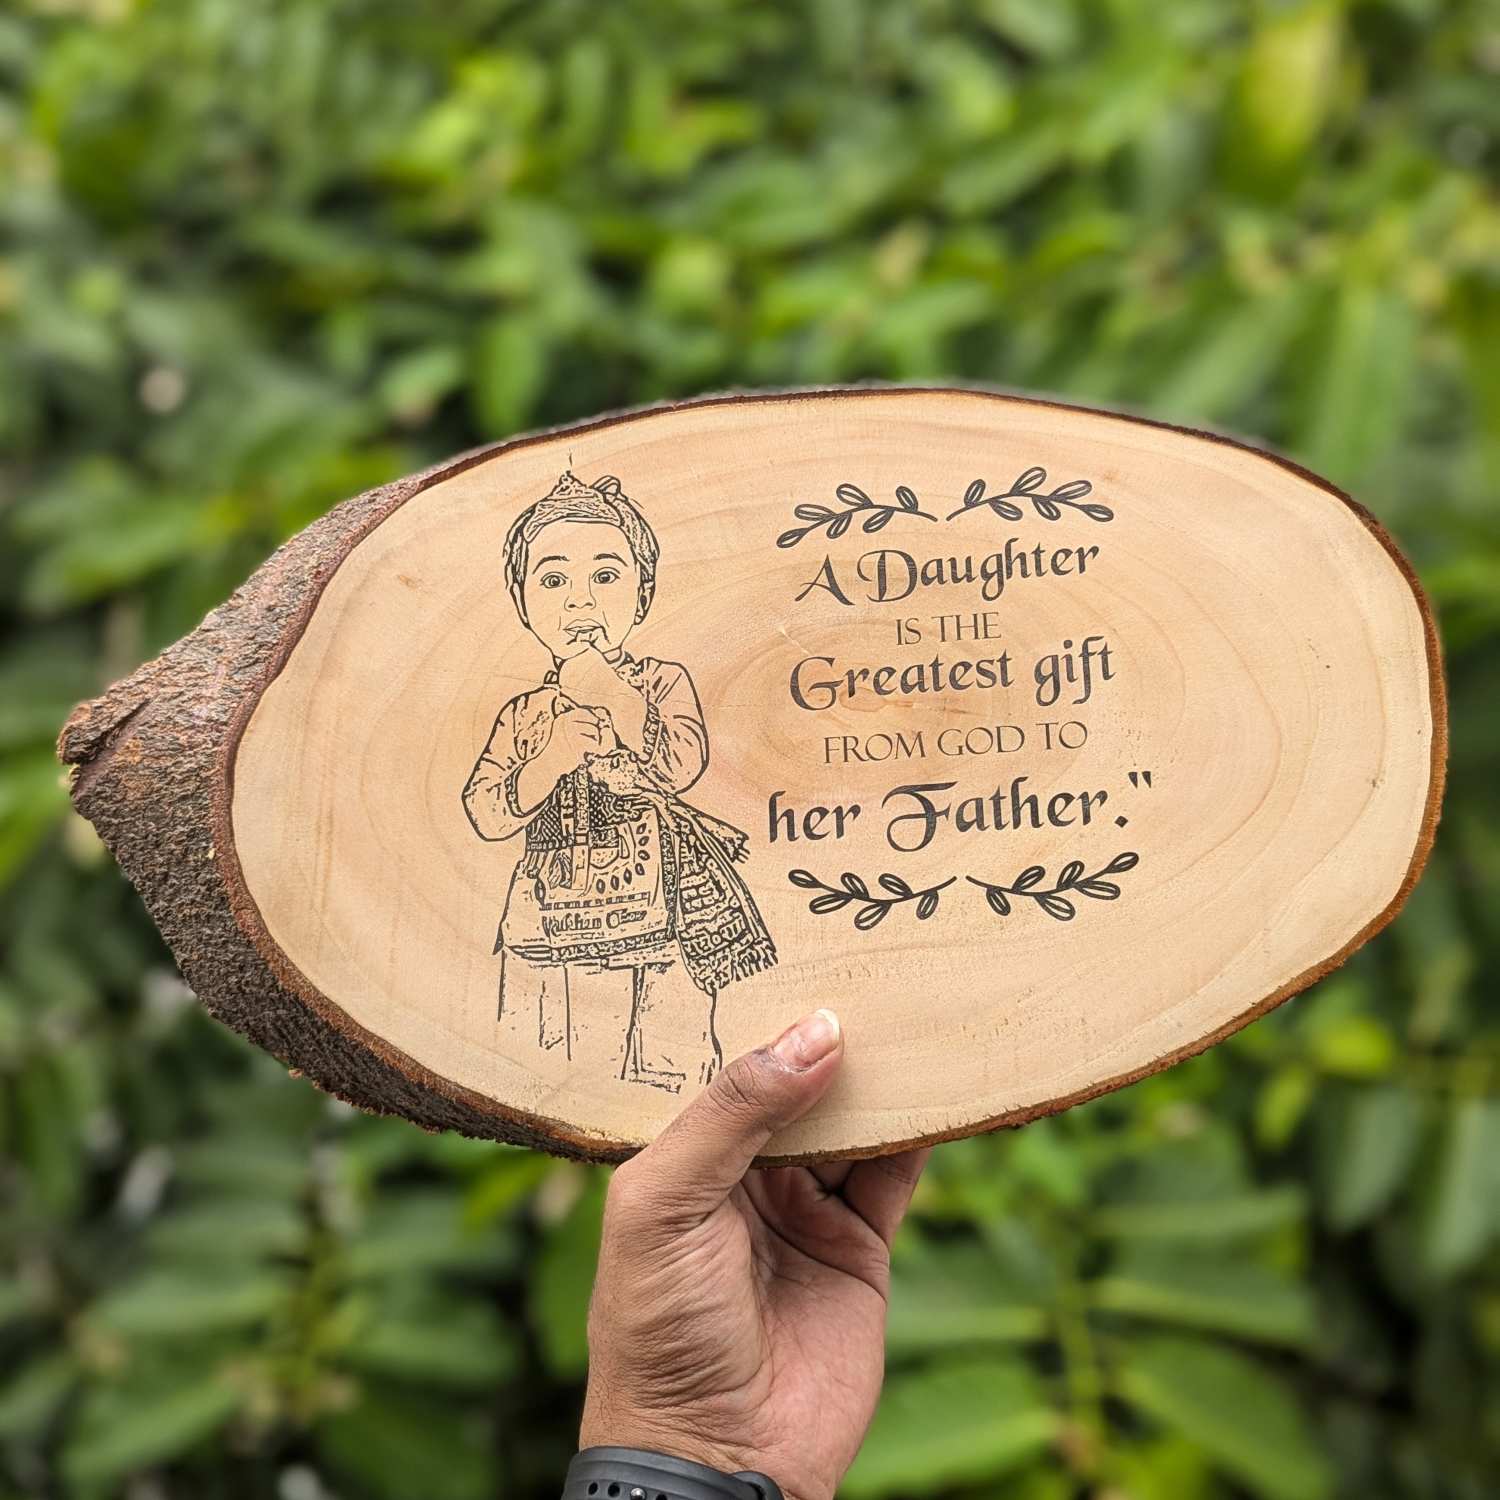 A Daughter
IS THE
Greatest gift
FROM GOD TO
her Father."